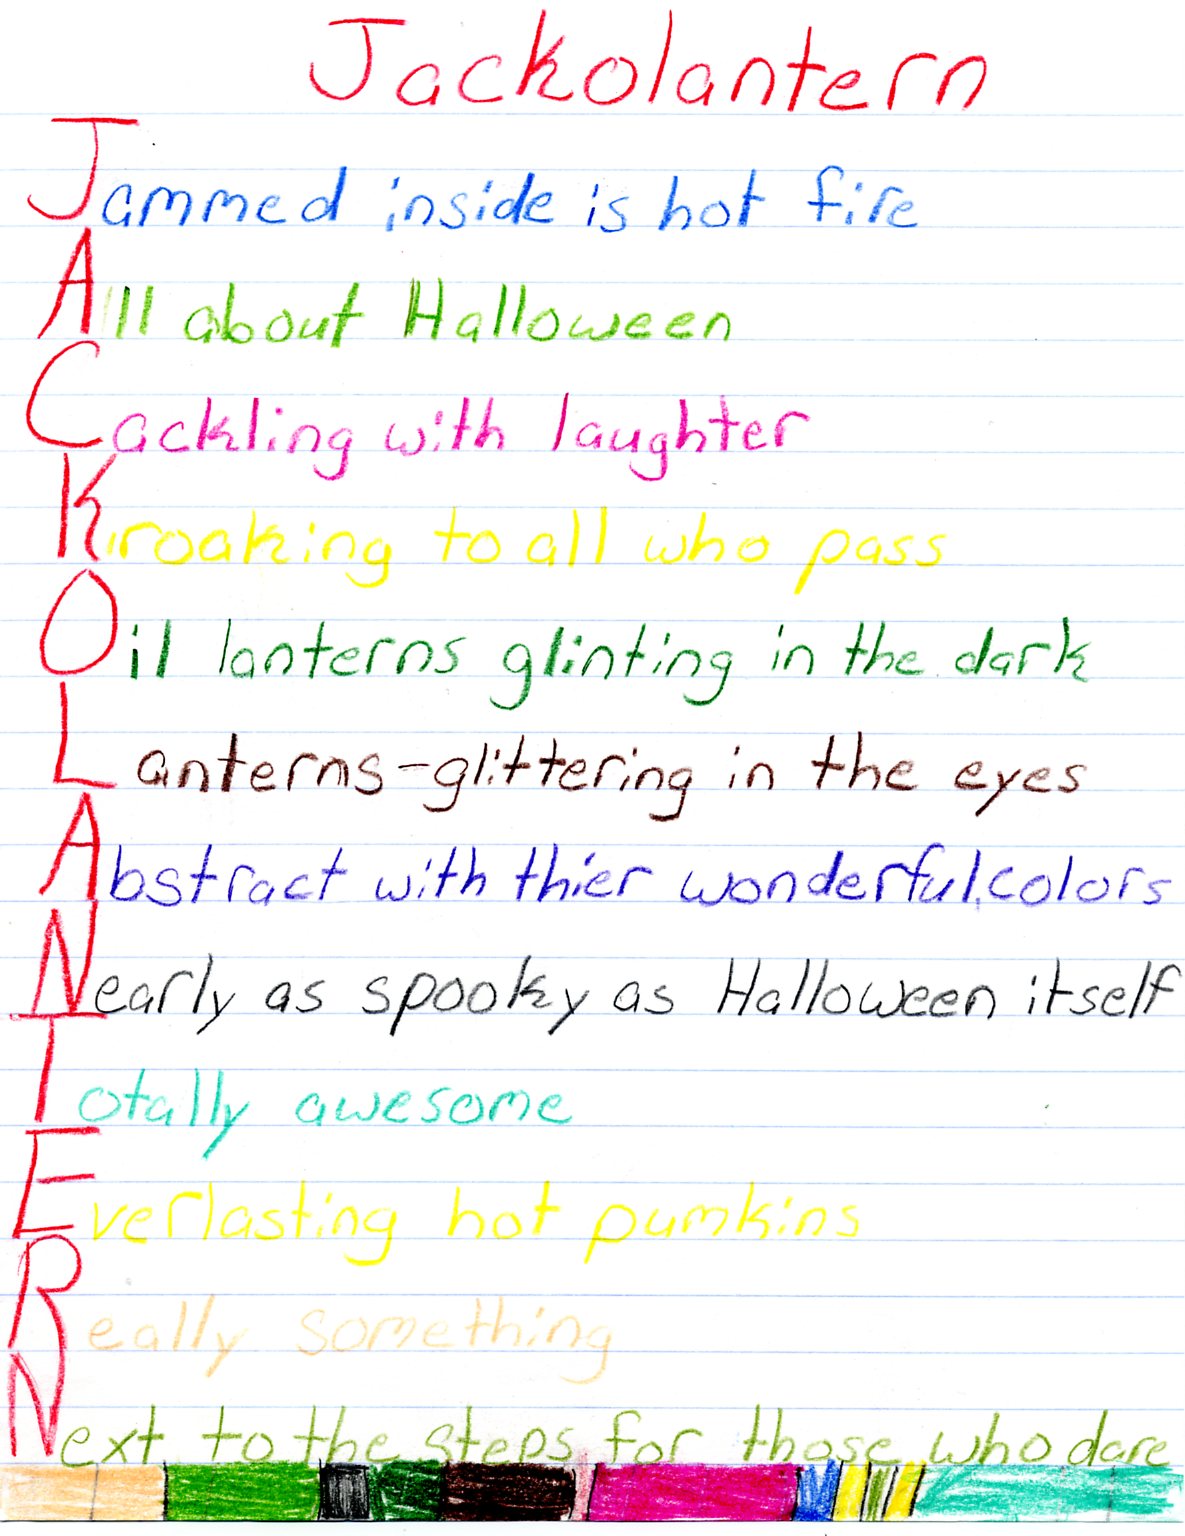 Jackolantern
Jammed inside is hot fire
All about Halloween
Cackling with laughter
Kiroaking to all who pass
Oil lanterns glinting in the dark
Lanterns-glittering in the eyes
Abstract with thier wonderful,colors
Nearly as spooky as Halloween itself
Totally awesome
Everlasting hot pumkins
Really something
Next to the steps for those who dare